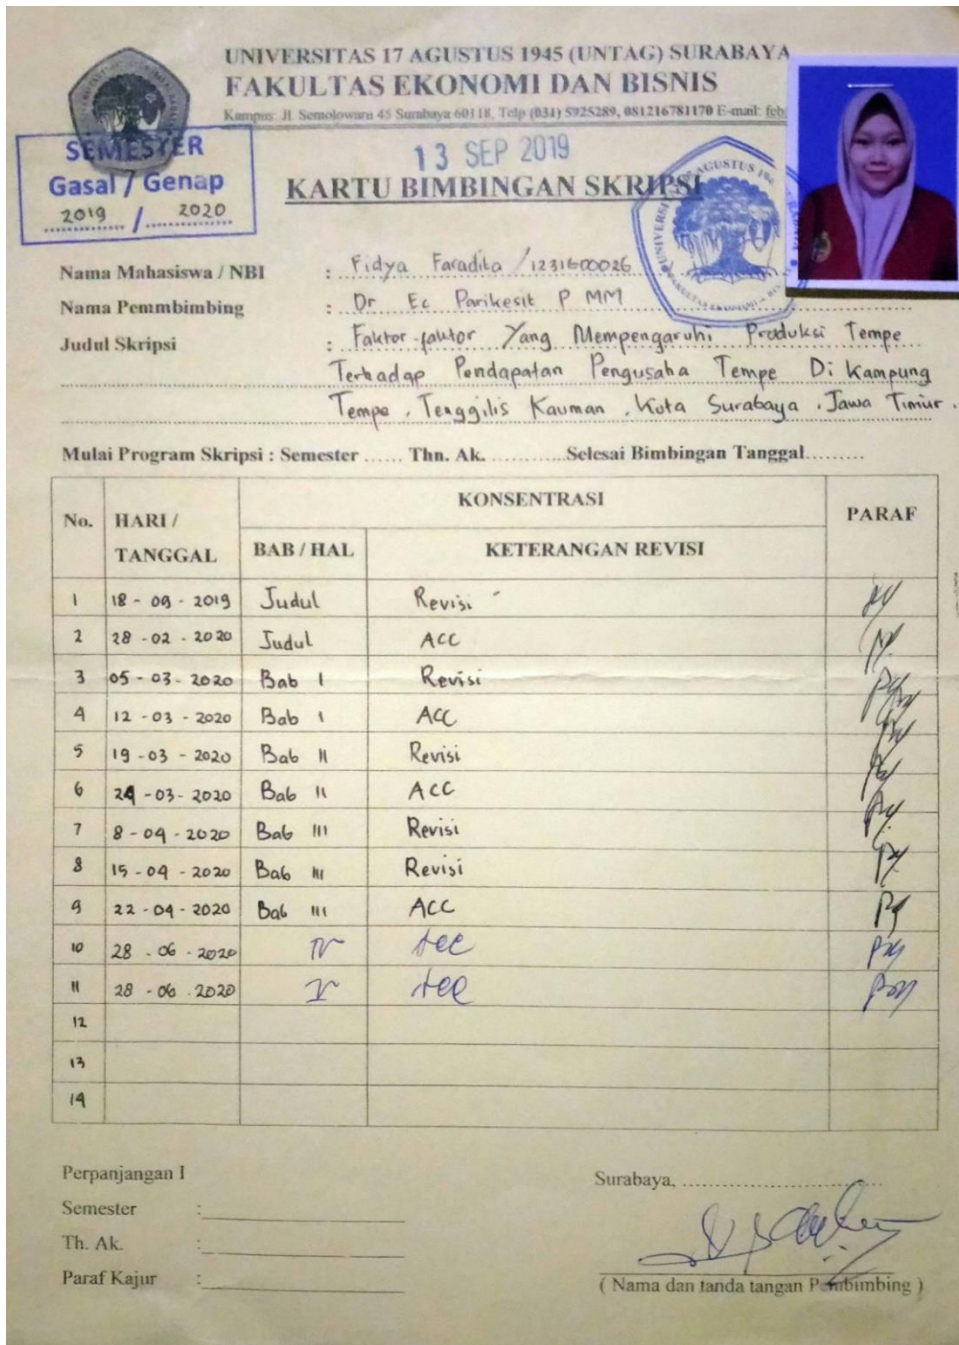 UNIVERSITAS 17 AGUSTUS 1945 (UNTAG) SURABAYA
FAKULTAS EKONOMI DAN BISNIS
Kampus: Jl. Semolowaru 45 Surabaya 60118, Telp (031) 5925289, 081216781170 E-mail: feb
SEMESTER
Gasal / Genap
2019 / 2020
13 SEP 2019
KARTU BIMBINGAN SKRIPSI
Nama Mahasiswa / NBI : Fidya Faradita / 1231600026
Nama Pemmbimbing : Dr Ec Parikesit P MM
Judul Skripsi : Faktor-faktor Yang Mempengaruhi Produksi Tempe
Terhadap Pendapatan Pengusaha Tempe Di Kampung
Tempe , Tenggilis Kauman , Kota Surabaya , Jawa Timur .
Mulai Program Skripsi : Semester ...... Thn. Ak. ............Selesai Bimbingan Tanggal.........
No. HARI / TANGGAL KONSENTRASI PARAF
BAB / HAL KETERANGAN REVISI
1 18 - 09 - 2019 Judul Revisi
2 28 - 02 - 2020 Judul ACC
3 05 - 03 - 2020 Bab I Revisi
4 12 - 03 - 2020 Bab I ACC
5 19 - 03 - 2020 Bab II Revisi
6 24 - 03 - 2020 Bab II ACC
7 8 - 04 - 2020 Bab III Revisi
8 15 - 04 - 2020 Bab III Revisi
9 22 - 04 - 2020 Bab III ACC
10 28 - 06 - 2020 IV Acc
11 28 - 06 - 2020 V Acc
12
13
14
Perpanjangan I
Semester :
Th. Ak. :
Paraf Kajur :
Surabaya, ..............................
( Nama dan tanda tangan Pembimbing )